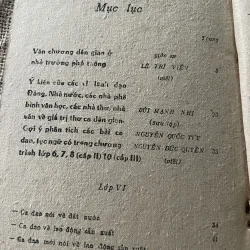 Mục lục
Trang
Văn chương dân gian ở
nhà trường phổ thông
LÊ TRÍ VIỄN
Ý kiến của các vị lãnh đạo
Đảng, Nhà nước, các nhà phê
bình văn học, các nhà thơ, nhà
văn về giá trị thơ ca dân gian.
BÙI MẠNH NHỊ
(sưu tập)
Gợi ý phân tích các bài ca
dao, tục ngữ có trong chương
trình lớp 6, 7, 8 (cấp II) 10 (cấp III)
NGUYỄN QUỐC TÚY
NGUYỄN ĐỨC QUYỀN
Lớp VI
— Ca dao nói về đất nước
— Ca dao nói về lao động sản xuất
— Ca dao mới nói về lao động sản xuất